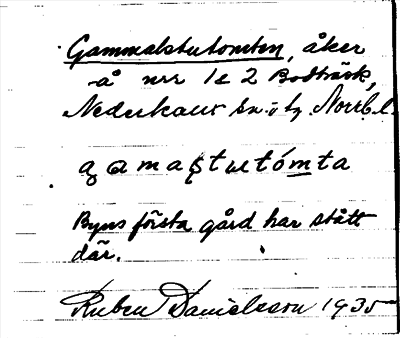 Gammalstutomten, åker
å nrr 1 & 2 Bodträsk,
Nederkalix sn o tg. Norrb. l.
Byns första gård har stått
där.
Ruben Danielsson 1935